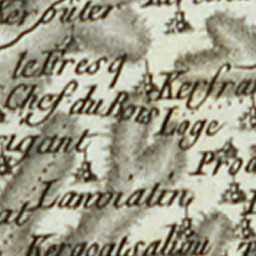 Kerouter
le Fresq
Kerfra
Chef du Bois
Loge
igant
Pro
Lanviatin
at
Kergoatsaliou